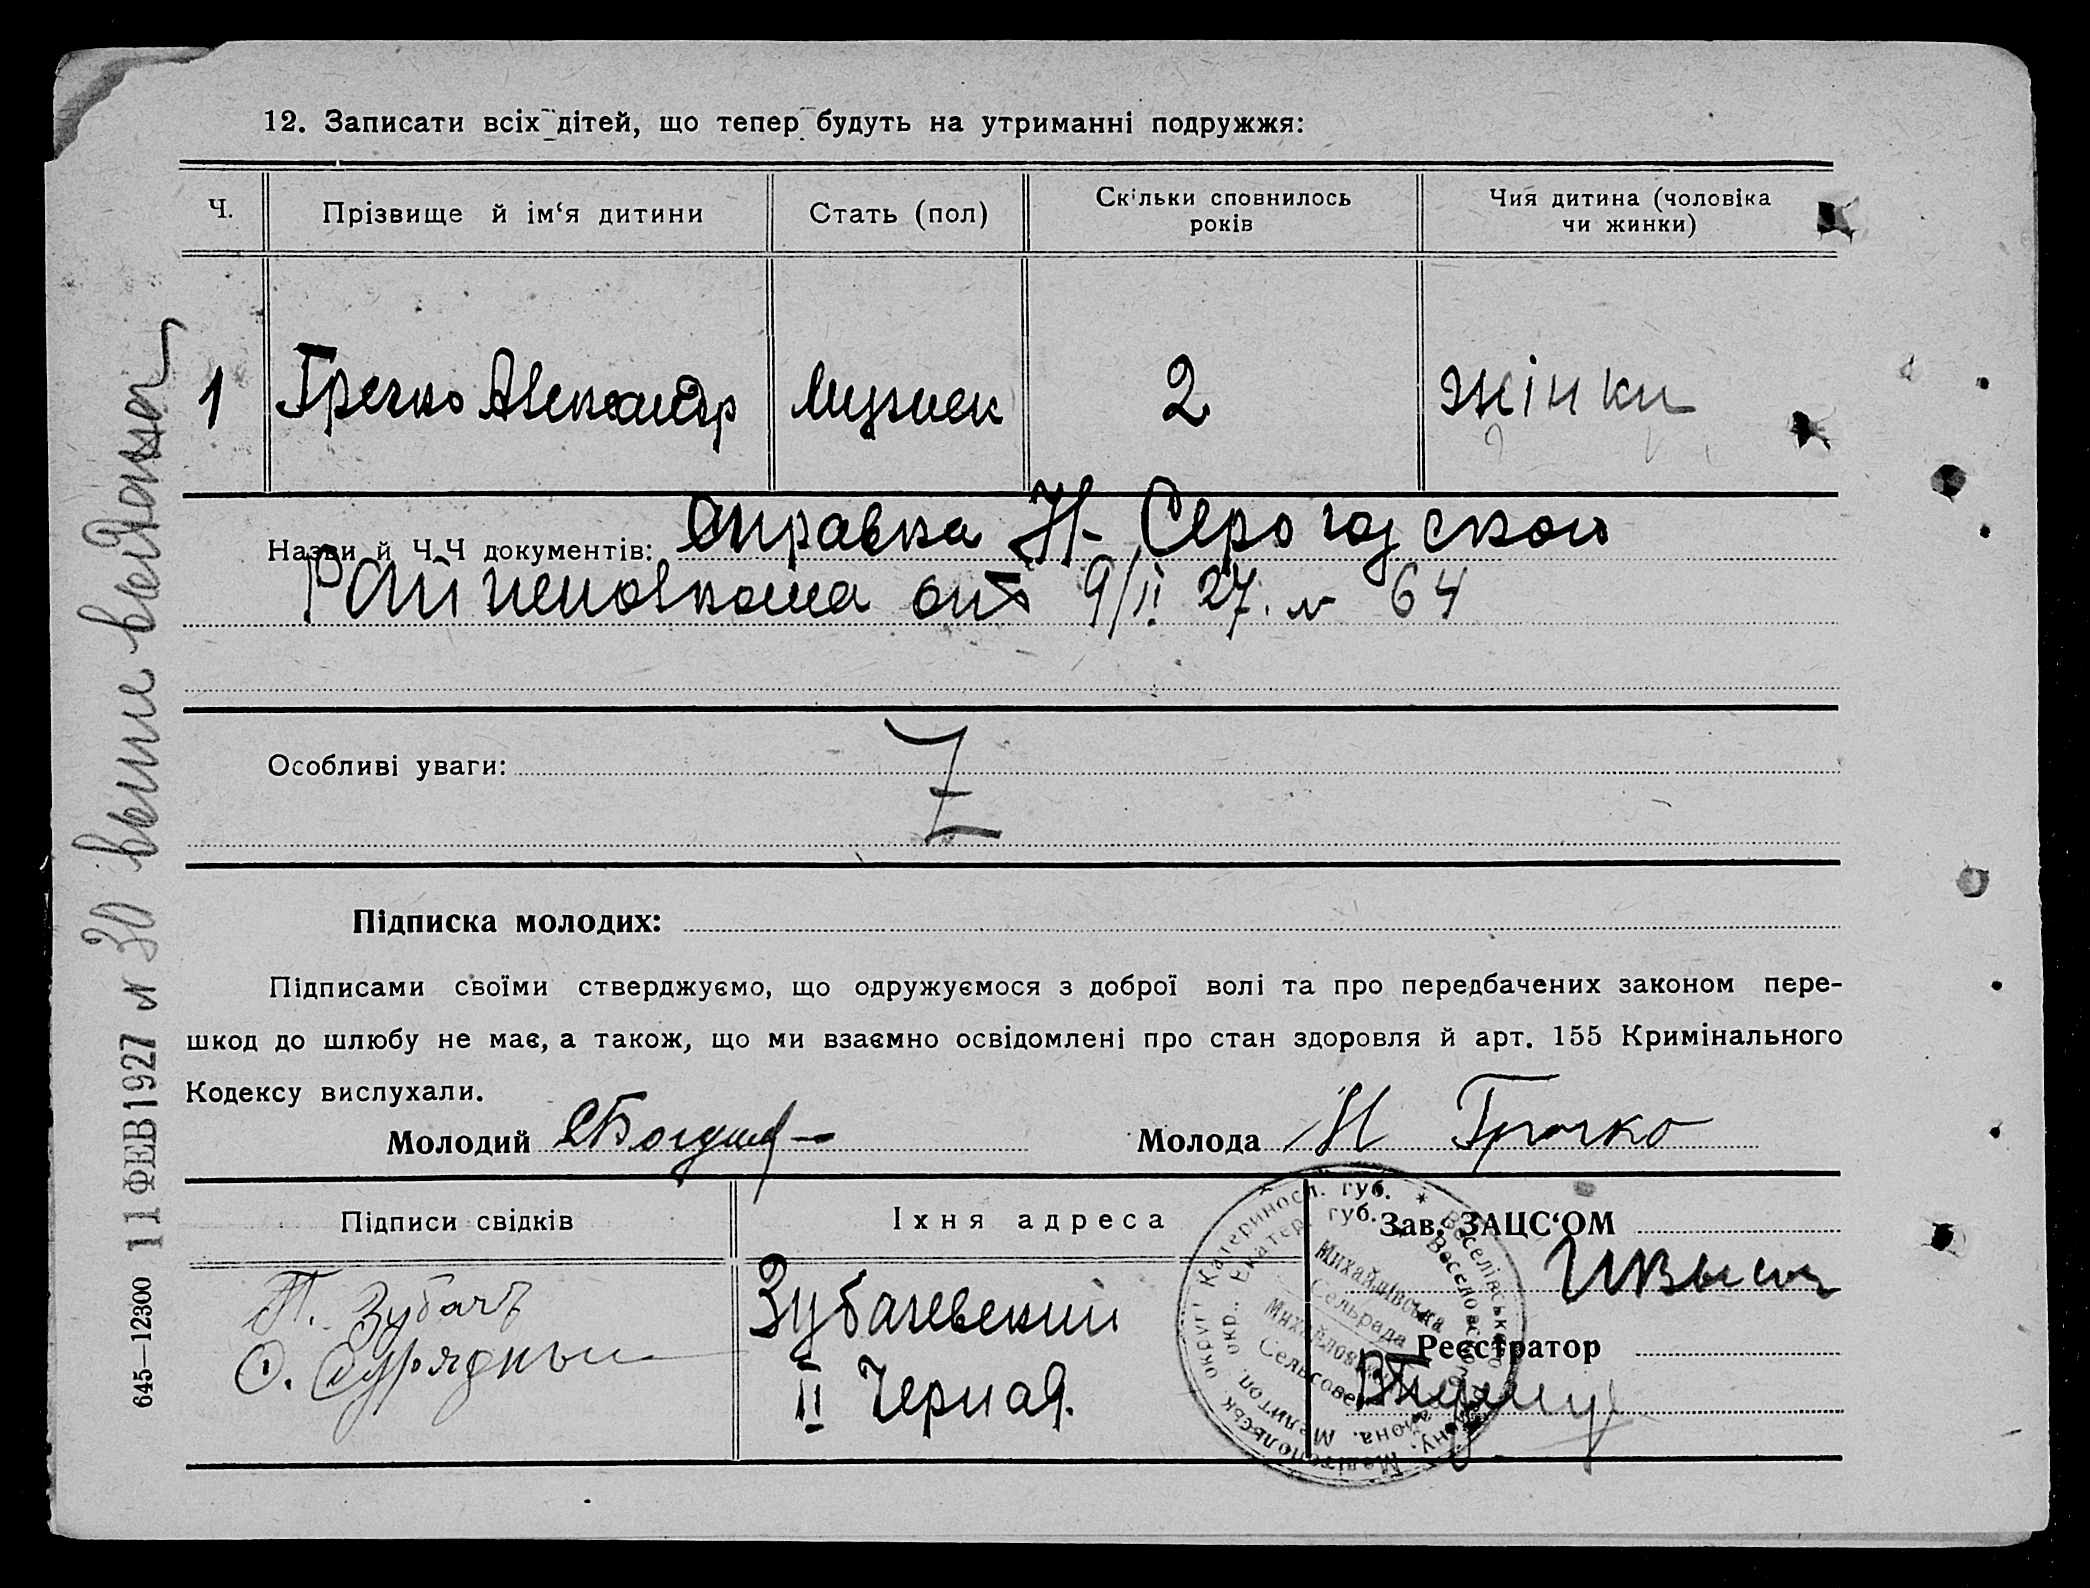 12. Записати всіх дітей, що тепер будуть на утриманні подружжя:
Ч.
Прізвище й ім‘я дитини
Стать (пол)
Скільки сповнилось
років
Чия дитина (чоловіка
чи жинки)
1
Гречко Александр
Мужиск
2
жінки
Назви й Ч.Ч документів: Справка Н-Серогозской
Райисполкома от 9/II 27. № 64
Особливі уваги:
Z
Підписка молодих:
Підписами своїми стверджуємо, що одружуємося з доброї волі та про передбачених законом пере-
шкод до шлюбу не має, а також, що ми взаємно освідомлені про стан здоровля й арт. 155 Кримінального
Кодексу вислухали.
Молодий
Молода Н Гречко
Підписи свідків
Їхня адреса
П. Зубачъ
О.
Зубачевский
II Черная.
Зав. ЗАЦС‘ОМ
Реєстратор
Катеринос. губ. * Веселівського району, Мелітопольськ. округ
Екатер. губ. Веселовского района, Мелитоп. окр.
Михайлівська
Сельрада
Михайловский
Сельсовет
645—12300
11 ФЕВ 1927 № 30 выпис выдана